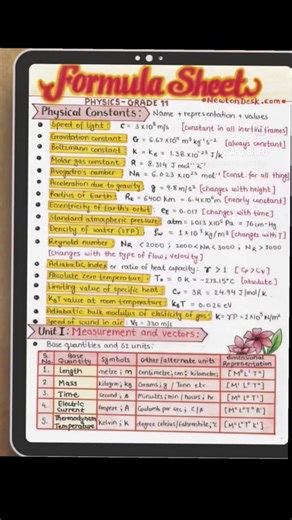 Formula Sheet
PHYSICS - GRADE 11
•NewtonDesk.com•
Physical Constants: Name + representation + values
• Speed of light: C = 3×10⁸ m/s [constant in all inertial frames]
• Gravitation constant: G = 6.67×10⁻¹¹ m³ kg⁻¹ s⁻² [always constant]
• Boltzmann constant: K = KB = 1.38×10⁻²³ J/K
• Molar gas constant: R = 8.314 J mol⁻¹ K⁻¹
• Avogadro's number NA = 6.023×10²³ mol⁻¹ [const. for all thing]
• Acceleration due to gravity: g = 9.8 m/s² [changes with height]
• Radius of Earth: Re = 6400 km = 6.4×10⁶ m [nearly constant]
• Eccentricity of Earth's orbit: e = 0.017 [changes with time]
• Standard atmospheric pressure: atm = 1.013×10⁵ Pa = 76 cm-Hg
• Density of water (STP) = 1×10³ kg/m³ [changes with T]
• Reynold number NR < 2000; 2000 < NR < 3000; NR > 3000
[changes with the type of flow, velocity]
• Adiabatic index or ratio of heat capacity: γ > 1 [Cp > Cv]
• Absolute zero temperature: To = 0 K = -273.15°C [absolute]
• Limiting value of specific heat: = 3R = 24.94 J/mol/K
• KBT value at room temperature: KBT = 0.026 eV
• Adiabatic bulk modulus of elasticity of gas: K = γP
• Speed of sound in air: Vs = 330 m/s
Unit 1: Measurement and vectors:
• Base quantities and SI units:
S. No. Base Quantity Symbols Other/alternate units Dimensional Representation
1. Length metre; m centimetre; cm; kilometre; [M⁰L¹T⁰]
2. Mass kilogram; kg Grams; g / Tonn etc [M¹L⁰T⁰]
3. Time second; s Minutes; min / hours; hr [M⁰L⁰T¹]
4. Electric Current Ampere; A Coulomb per sec; C/s
5. Thermodynamic Temperature Kelvin; K degree Celsius/Fahrenheit; °C